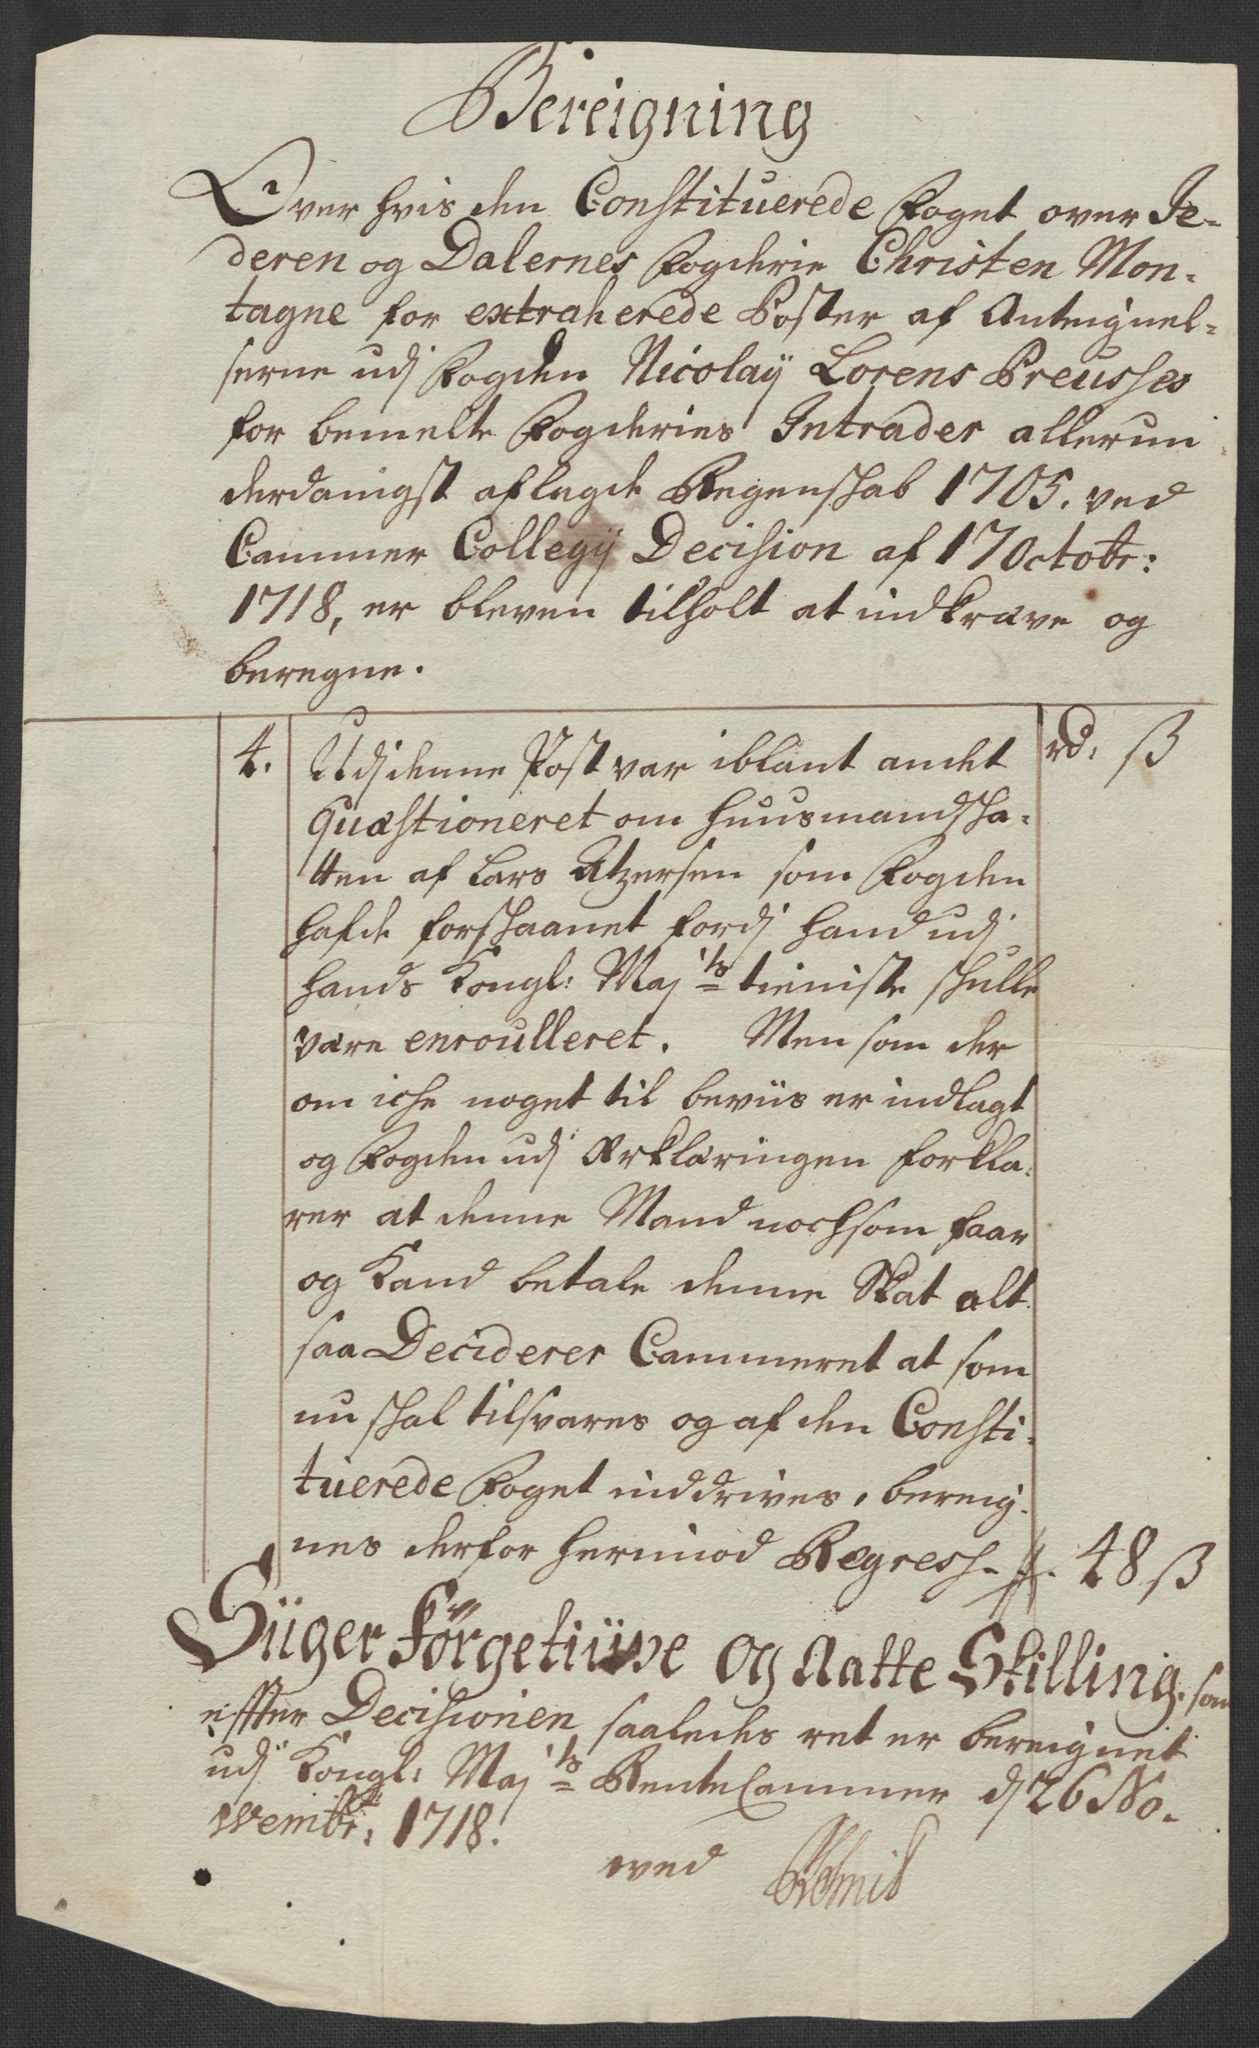 Bereigning
Over hvis den Constituerede Foget over Je-
deren og Dalernes Fogderie Christen Mon-
tagne for extraherede Poster af Anteignel-
serne udj Fogden Nicolaÿ Lorens Preusses
for bemelte Fogderies Intrader allerun
derdanigst aflagde Regenskab 1705. ved
Cammer Collegij Decision af 17 Octobr:
1718, er bleven tilholt at indkræve og
beregne.
rd: ß
4. Udj denne Post var iblant andet
quæstioneret om Huusmandska-
tten af Lars Atzersen som Fogden
hafde forskaanet fordj hand udj
hands Kongl: Maj:ts tieniste skulle
være enroulleret. Men som der
om iche noget til beviis er indlagt
og Fogden udj Erklæringen forkla-
rer at denne Mand nochsom faar
og kand betale denne Skat alt
saa Deciderer Cammeret at som
nu skal tilsvares og af den Consti-
tuerede Foget inddrives, bereig-
nes derfor herimod Regress - 48 ß
Siiger Førgetiuve og Aatte Skilling. som
effter Decisionen saaledes ret er bereignet
udj Kongl: Maj:ts Rente Cammer dj 26 No-
vembr: 1718.
ved